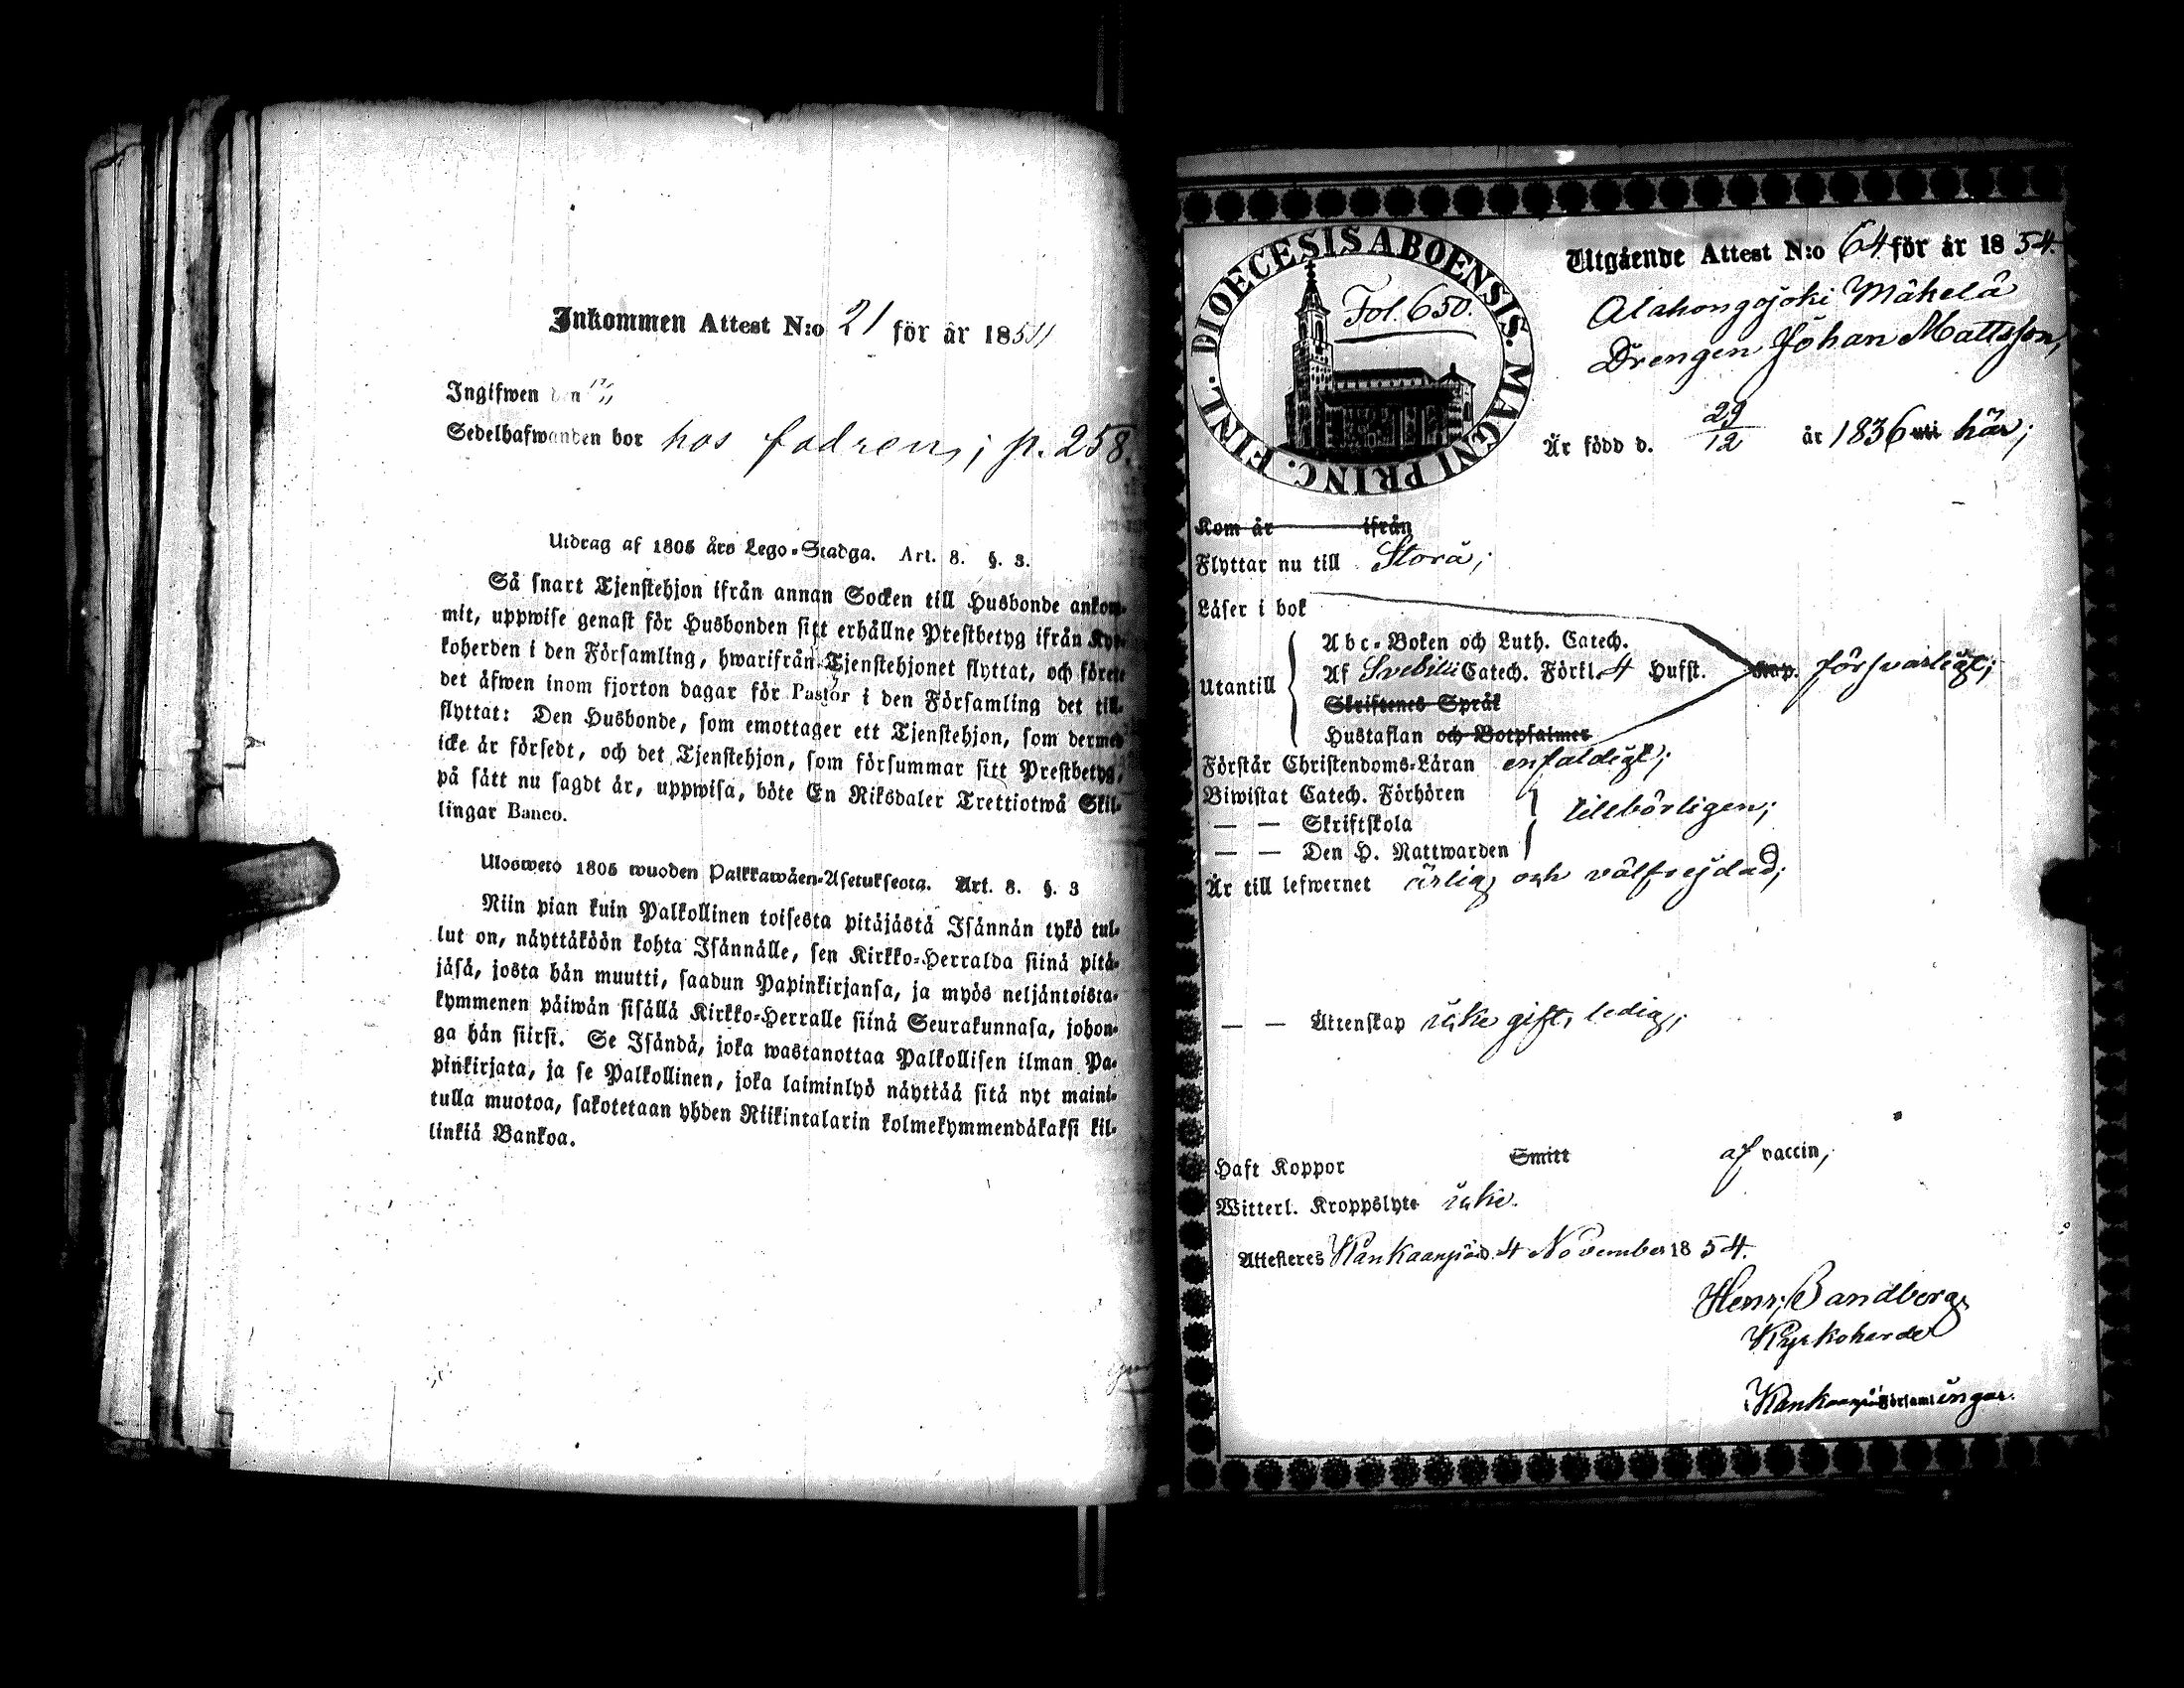 Inkommen Attest N:o 21 för år 1854
Ingifwen den
Sedelhafwanden bor hos fadren; p. 258.
Utdrag af 1805 års Lego-Stadga. Art. 8. §. 3.
Så snart Tjenstehjon ifrån annan Socken till Husbonde ankom-
mit, uppwise genast för Husbonden sitt erhållne Prestbetyg ifrån Kyr-
koherden i den Församling, hwarifrån Tjenstehjonet flyttat, och förete
det äfwen inom fjorton dagar för Pastor i den Församling det till-
flyttat: Den Husbonde, som emottager ett Tjenstehjon, som dermed
icke är försedt, och det Tjenstehjon, som försummar sitt Prestbetyg,
på sätt nu sagdt är, uppwisa, böte En Riksdaler Trettiotwå Skil-
lingar Banco.
Uloswetö 1805 wuoden Palkkawäen-Asetuksesta. Art. 8. §. 3
Niin pian kuin Palkollinen toisesta pitäjästä Isännän tykö tul-
lut on, näyttäköön kohta Isännälle, sen Kirkko-Herralda siinä pitä-
jäsä, josta hän muutti, saadun Papinkirjansa, ja myös neljäntoista-
kymmenen päiwän sisällä Kirkko-Herralle siinä Seurakunnasa, johon-
ga hän siirsi. Se Isändä, joka wastanottaa Palkollisen ilman Pa-
pinkirjata, ja se Palkollinen, joka laiminlyö näyttää sitä nyt maini-
tulla muotoa, sakotetaan yhden Riikintalarin kolmekymmendäkaksi kil-
linkiä Bankoa.
DIOECESIS ABOENSIS. MAGNI PRINC. FINL.
Fol. 650.
Utgående Attest N:o 64 för år 1854.
Alahongojoki Mäkelä
Drengen Johan Mattsson,
Är född d. 29/12 år 1836 uti här;
Kom år ifrån
Flyttar nu till Storå;
Läser i bok
Utantill
Abc-Boken och Luth. Catech.
Af Svebilii Catech. Förkl. 4 Hufst. Kap. försvarligt;
Skriftenes Språk
Hustaflan och Botpsalmer
Förstår Christendoms-Läran enfaldigt;
Biwistat Catech. Förhören
— — Skriftskola tillbörligen;
— — Den H. Nattwarden
Är till lefwernet ärlig och välfrejdad;
— — Äktenskap icke gift, ledig;
Haft Koppor Smitt af vaccin,
Witterl. Kroppslyte icke.
Attesteres Kankaanpää d. 4 November 1854.
Henr. Sandberg
Kyrkoherde
Kankaanpää Församlingar.